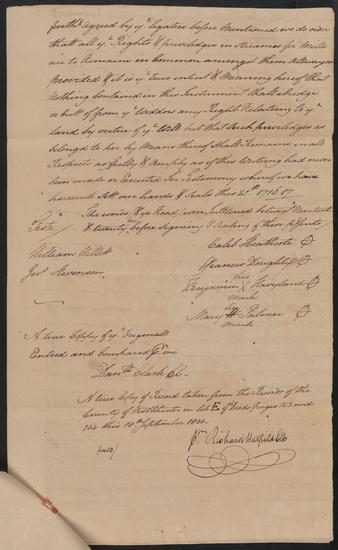 furthr agreed by ye Legatees before Mentioned we do order
that all ye Rights & priviledges in streames for Mills
are to Remaine in common amongst them Allwayes
Provided & it is ye true intent & Meaning hereof that
nothing Contained in this Instrument shall abridge
or cutt off from ye Widdow any Right Relating to ye
land by virtue of ye Will but that Such priviledges as
belongd to her by Means thereof shall Remaine in all
Respects as fully & Amply as if this Writing had never
been made or Executed In Testimony whereof we have
hereunto sett our hands & Seals this 21st 1716.17
The words & ye Road, were Interlined between
& twenty before signing & Sealing of these presents
Teste
William Willett
Jos. Stevenson
Caleb Heathcote
Francis Doughty
his
Benjamin X Haryland
mark
her
Mary H Palmer
mark
A true Coppy of ye Originall
Entred and Compared Pr me
Danll Clark Cl.
A true Copy of Record taken from the Records of the
County of Westchester in Lib E. of Deeds Pages 103 and
104 this 10th September 1800.
Pr. Richard Hatfield Clk